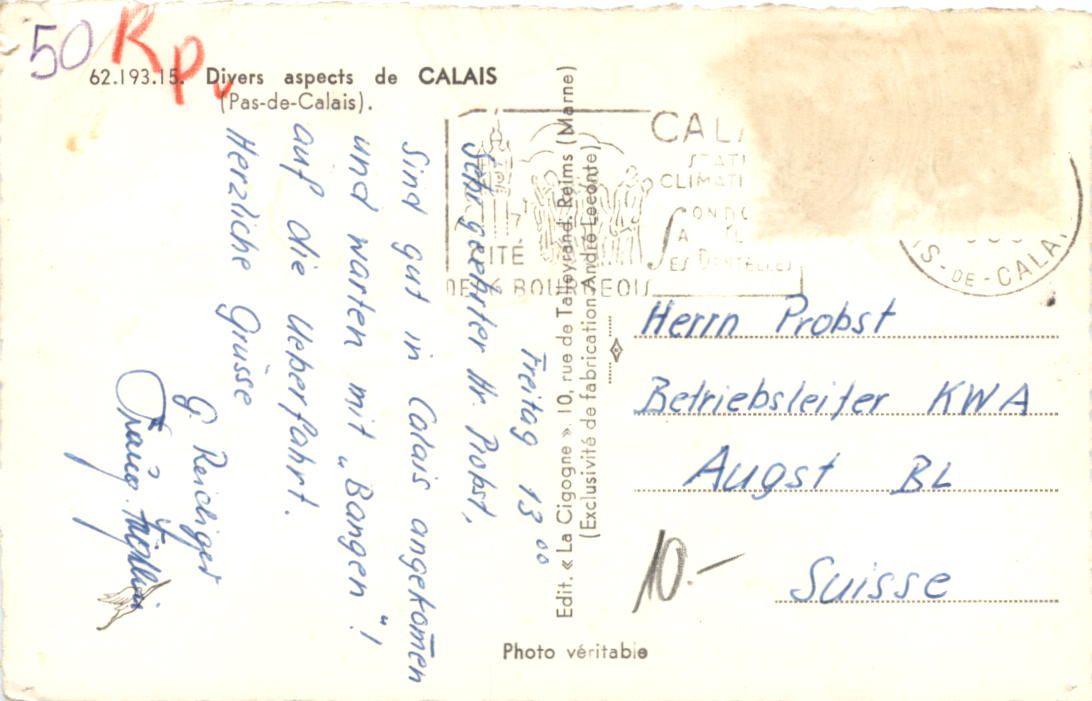 50 Rp.
62.193.15. Divers aspects de CALAIS
(Pas-de-Calais).
Freitag 13⁰⁰
Sehr geehrter Hr. Probst,
Sind gut in Calais angekom̄en
und warten mit „Bangen"!
auf die Ueberfahrt.
Herzliche Grüsse
G. Reidiger
Edit. « La Cigogne ». 10, rue de Talleyrand. Reims (Marne)
(Exclusivité de fabrication André Leconte)
CALA
STATI
CLIMATI
CITÉ
DES 6 BOURGEOIS
ES DENTELLES
S-DE-CALA
Herrn Probst
Betriebsleiter KWA
Augst BL
Suisse
10.-
Photo véritable